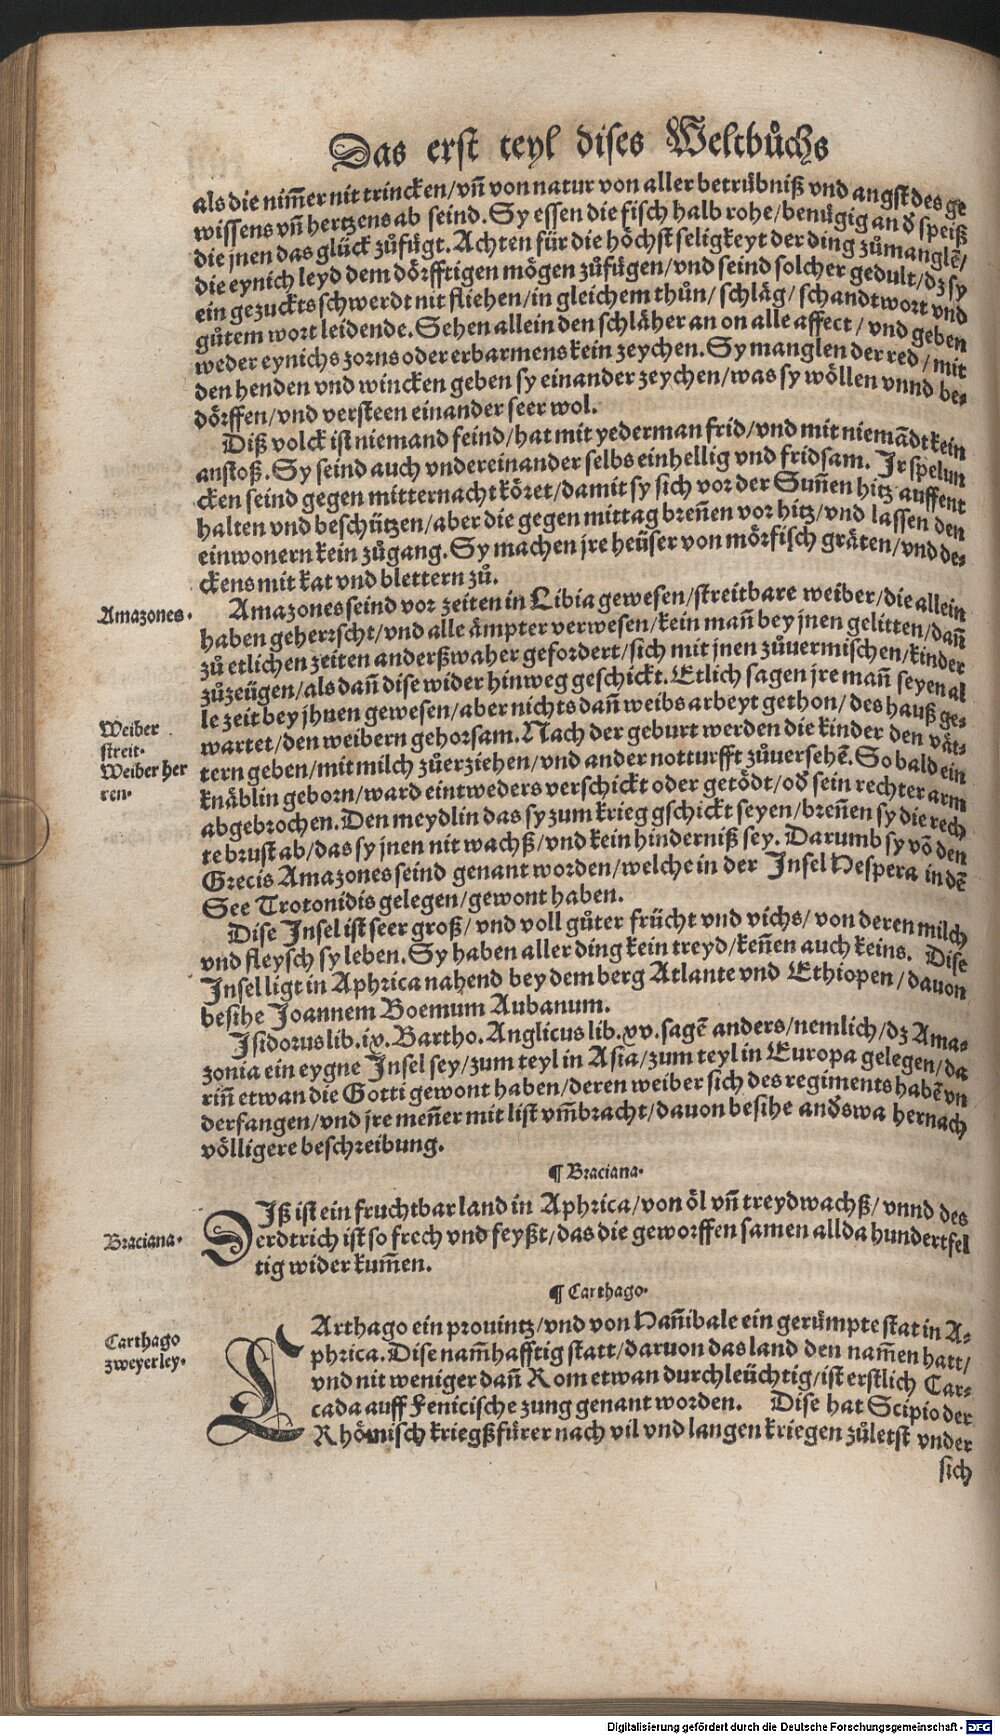 Das erst teyl dises Weltbůchs
als die nim̃er nit trincken/vñ von natur von aller betrübniß vnd angst des ge
wissens vñ hertzens ab seind. Sy essen die fisch halb rohe/benügig an ď speiß
die jnen das glück zůfügt. Achten für die höchst seligkeyt der ding zůmanglẽ/
die eynich leyd dem dörfftigen mögen zůfügen/vnd seind solcher gedult/dz sy
ein gezuckts schwerdt nit fliehen/in gleichem thůn/schläg/schandtwort vnd
gůtem wort leidende. Sehen allein den schläher an on alle affect/vnd geben
weder eynichs zorns oder erbarmens kein zeychen. Sy manglen der red/mit
den henden vnd wincken geben sy einander zeychen/was sy wöllen vnnd be-
dörffen/vnd versteen einander seer wol.
Diß volck ist niemand feind/hat mit yederman frid/vnd mit niemãdt kein
anstoß. Sy seind auch vndereinander selbs einhellig vnd fridsam. Jr spelun
cken seind gegen mitternacht köret/damit sy sich vor der Suñen hitz auffent
halten vnd beschützen/aber die gegen mittag breñen vor hitz/vnd lassen den
einwonern kein zůgang. Sy machen jre heüser von mörfisch gräten/vnd de-
ckens mit kat vnd blettern zů.
Amazones.
Amazones seind vor zeiten in Libia gewesen/streitbare weiber/die allein
haben geherrscht/vnd alle ämpter verwesen/kein mañ bey jnen gelitten/dañ
zů etlichen zeiten anderßwaher gefordert/sich mit jnen zůuermischen/kinder
zůzeügen/als dañ dise wider hinweg geschickt. Etlich sagen jre mañ seyen al
Weiber
streit.
Weiber her
ren.
le zeit bey jhnen gewesen/aber nichts dañ weibs arbeyt gethon/des hauß ge-
wartet/den weibern gehorsam. Nach der geburt werden die kinder den vät-
tern geben/mit milch zůerziehen/vnd ander notturfft zůuersehẽ. So bald ein
knäblin geborn/ward eintweders verschickt oder getödt/oď sein rechter arm
abgebrochen. Den meydlin das sy zum krieg gschickt seyen/breñen sy die rech
te brust ab/das sy jnen nit wachß/vnd kein hinderniß sey. Darumb sy võ den
Grecis Amazones seind genant worden/welche in der Insel Hespera in dẽ
See Trotonidis gelegen/gewont haben.
Dise Insel ist seer groß/vnd voll gůter frücht vnd vichs/von deren milch
vnd fleysch sy leben. Sy haben aller ding kein treyd/keñen auch keins. Dise
Insel ligt in Aphrica nahend bey dem berg Atlante vnd Ethiopen/dauon
besihe Joannem Boemum Aubanum.
Isidorus lib. ix. Bartho. Anglicus lib. xv. sagẽ anders/nemlich/dz Ama-
zonia ein eygne Insel sey/zum teyl in Asia/zum teyl in Europa gelegen/da
riñ etwan die Gotti gewont haben/deren weiber sich des regiments habẽ vn
derfangen/vnd jre meñer mit list vm̃bracht/dauon besihe anďswa hernach
völligere beschreibung.
¶ Braciana.
Braciana.
DIß ist ein fruchtbar land in Aphrica/von öl vñ treydwachß/vnnd des
erdtrich ist so frech vnd feyßt/das die geworffen samen allda hundertfel
tig wider kum̃en.
¶ Carthago.
Carthago
zweyerley.
CArthago ein prouintz/vnd von Hañibale ein gerümpte stat in A-
phrica. Dise nam̃hafftig statt/daruon das land den nam̃en hatt/
vnd nit weniger dañ Rom etwan durchleüchtig/ist erstlich Car-
cada auff Fenicische zung genant worden. Dise hat Scipio der
Rhömisch kriegßfürer nach vil vnd langen kriegen zůletst vnder
sich
Digitalisierung gefördert durch die Deutsche Forschungsgemeinschaft - DFG